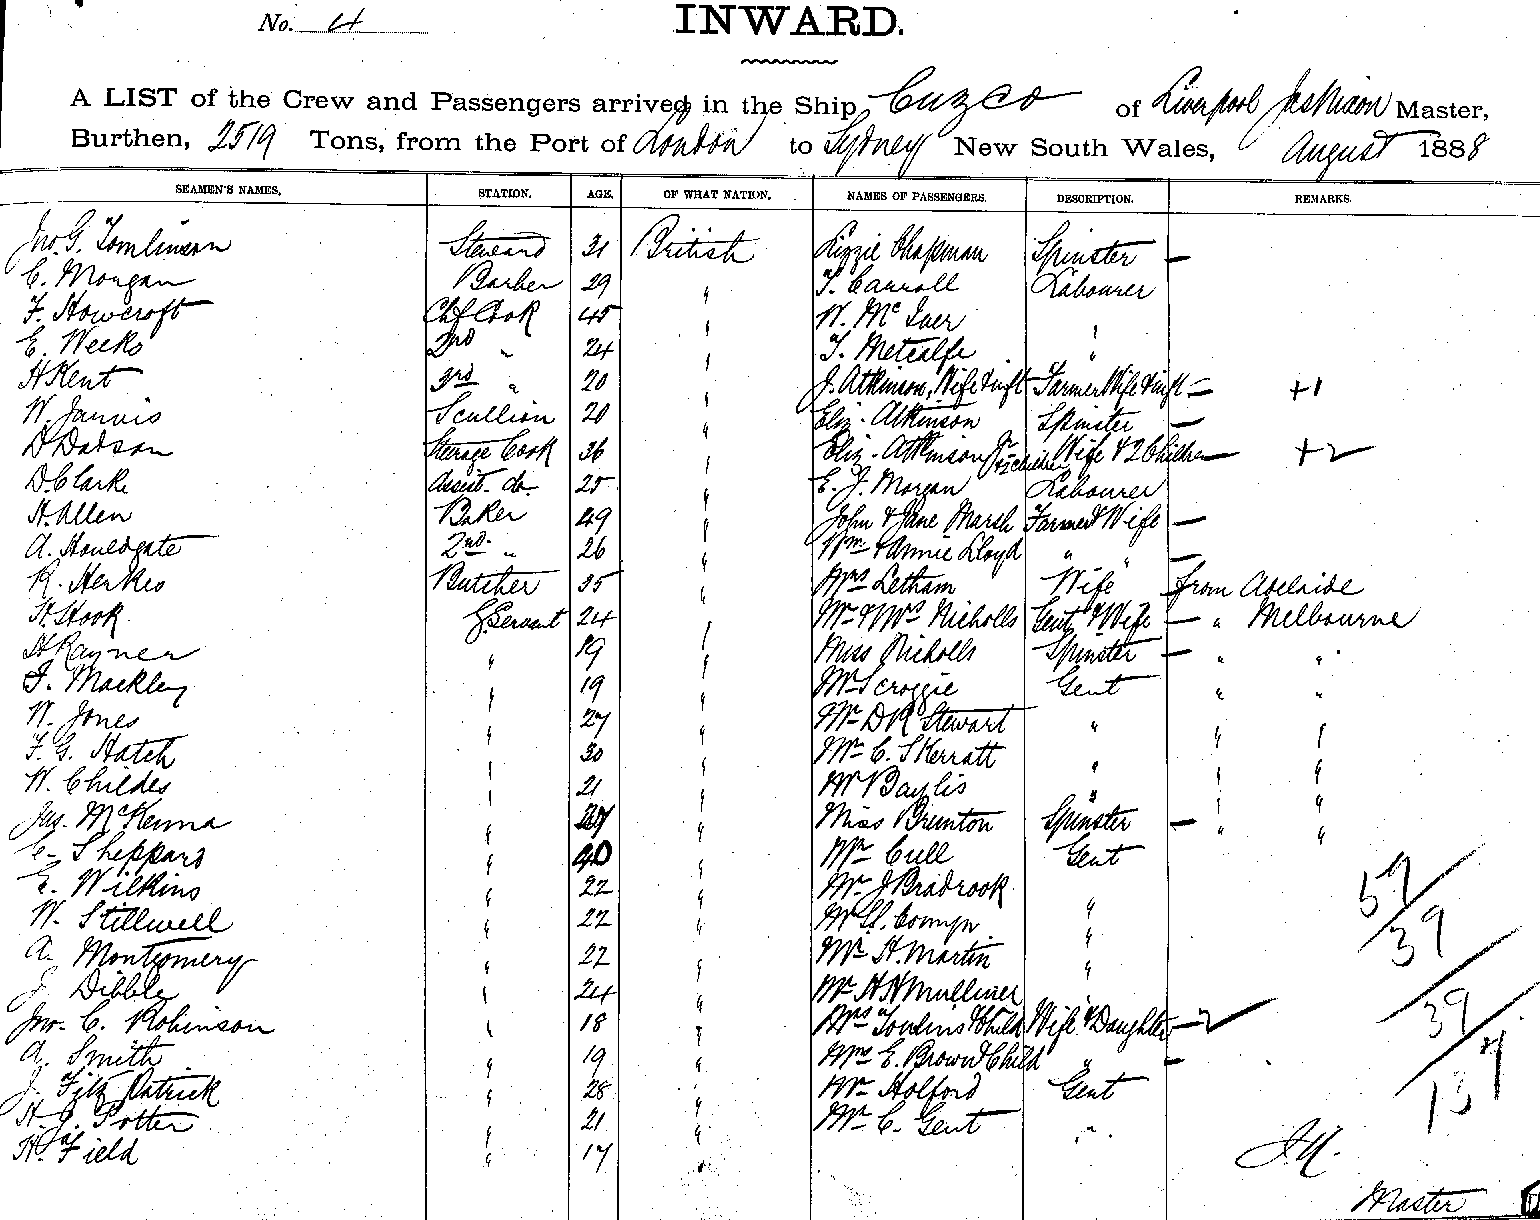 No. 4
INWARD.
A LIST of the Crew and Passengers arrived in the Ship, Cuzco of Liverpool Master,
Burthen, 2519 Tons, from the Port of London to Sydney New South Wales, August 1888
SEAMEN'S NAMES, STATION. AGE. OF WHAT NATION. NAMES OF PASSENGERS. DESCRIPTION. REMARKS.
Jno. G. Tomlinson Steward 31 British Lizzie Chapman Spinster —
C. Morgan Barber 29 " T. Carroll Labourer
F. Howcroft Chf Cook 45 " W. Mc "
E. Weeks 2nd " 24 " T. Metcalfe "
H Kent 3rd " 20 " J. Atkinson, Wife & inft Farmer Wife & inft — +1
W. Jarvis Scullion 20 " Eliz. Atkinson Spinster —
D Dobson Steerage Cook 36 " Eliz. Atkinson Jr & 2 children Wife & 2 Children — +2
D. Clarke Assist. do. 25 " E. J. Morgan Labourer
H. Allen Baker 49 " John & Jane Marsh Farmer & Wife —
A. Houldgate 2nd. " 26 " Wm & Annie Lloyd " " —
R. Herkes Butcher 35 " Mrs Letham Wife from Adelaide
H. Hook G. Servant 24 " Mr & Mrs Nicholls Gent & Wife — " Melbourne
H Rayner " 19 " Miss Nicholls Spinster — " "
F. Mackley " 19 " Mr Scroggie Gent " "
W. Jones " 27 " Mr D R Stewart " " "
F. G. Hatch " 30 " Mr C. Skerratt " " "
W. Childes " 21 " Mr Baylis " " "
Jas. McKenna " " Miss Brunton Spinster — " "
C. Sheppard " 40 " Mr Cull Gent
E. Wilkins " 22 " Mr J Bradrook "
W. Stillwell " 22 " Mr Comyn "
A. Montgomery " 22 " Mr H. Martin "
J. Dibble " 24 " Mr H H Mulliner
Jno. C. Robinson " 18 " Mrs Tomlins & Child Wife & Daughter — 2
A. Smith " 19 " Mrs E. Brown & Child " —
J. Fitz Patrick " 28 " Mr Holford Gent
H. J. Potter " 21 " Mr C. Gent "
H. Field " 17 "
59/39
39/
134
Master